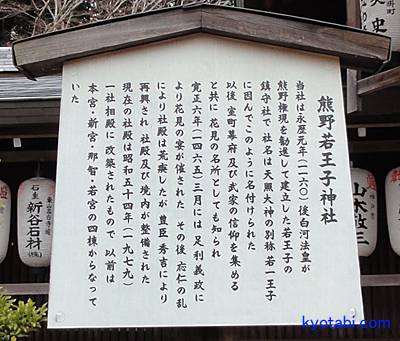 熊野若王子神社
当社は永歴元年（一一六〇）後白河法皇が
熊野権現を勧進して建立した若王子の
鎮守社で 社名は天照大神の別称 若一王子
に因んでこのように名付けられた
以後 室町幕府及び武家の信仰を集める
と共に 花見の名所としても知られ
寛正六年（一四六五）三月には 足利義政に
より花見の宴が催された その後 応仁の乱
により 社殿は荒癈したが 豊臣秀吉により
再興され 社殿及び境内が整備された
現在の社殿は昭和五十四年（一九七九）
一社相殿に改築されたもので 以前は
本宮・新宮・那智・若宮の四棟からなって
いた
石重
新谷石材
（株）
kyotabi.com